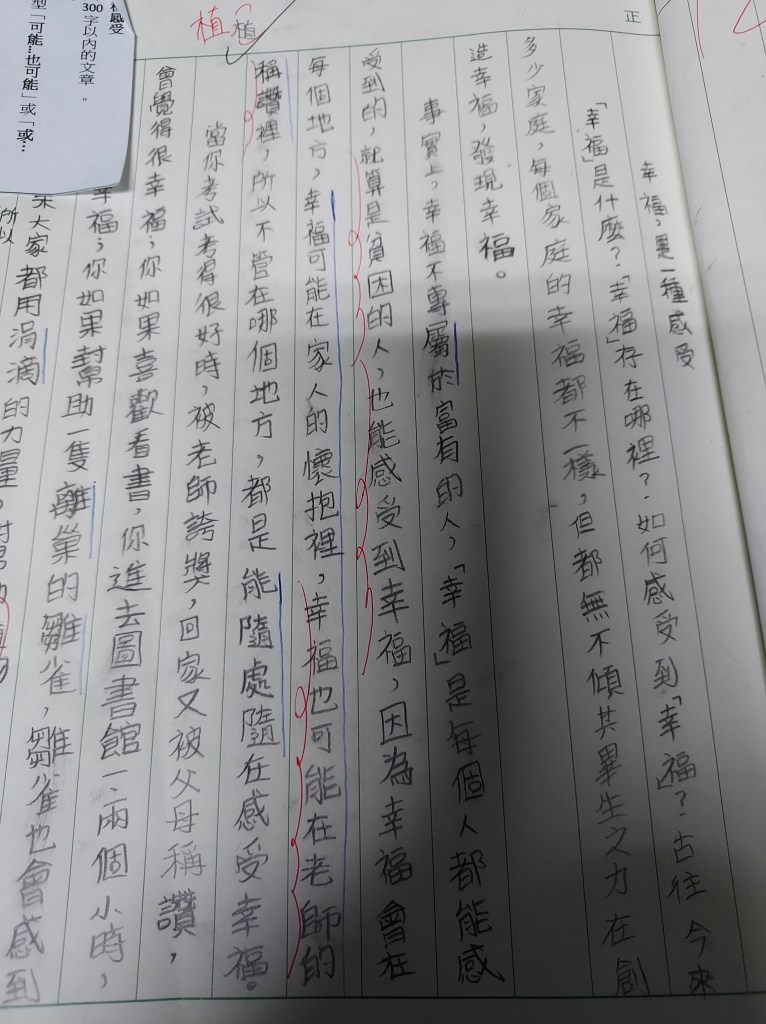 感受
300字以內的文章。
型「可能…也可能」或「或…
正
植
植
幸福，是一種感受
「幸福」是什麼？「幸福」存在哪裡？如何感受到「幸福」？古往今來
多少家庭，每個家庭的幸福都不一樣，但都無不傾其畢生之力在創
造幸福，發現幸福。
事實上，幸福不專屬於富有的人，「幸福」是每個人都能感
受到的，就算是貧困的人，也能感受到幸福，因為幸福會在
每個地方，幸福可能在家人的懷抱裡，幸福也可能在老師的
稱讚裡，所以不管在哪個地方，都是能隨處隨在感受幸福。
當你考試考得很好時，被老師誇獎，回家又被父母稱讚，
會覺得很幸福；你如果喜歡看書，你進去圖書館一、兩個小時，
幸福；你如果幫助一隻離巢的雛雀，雛雀也會感到
大家都用涓滴的力量，
所以